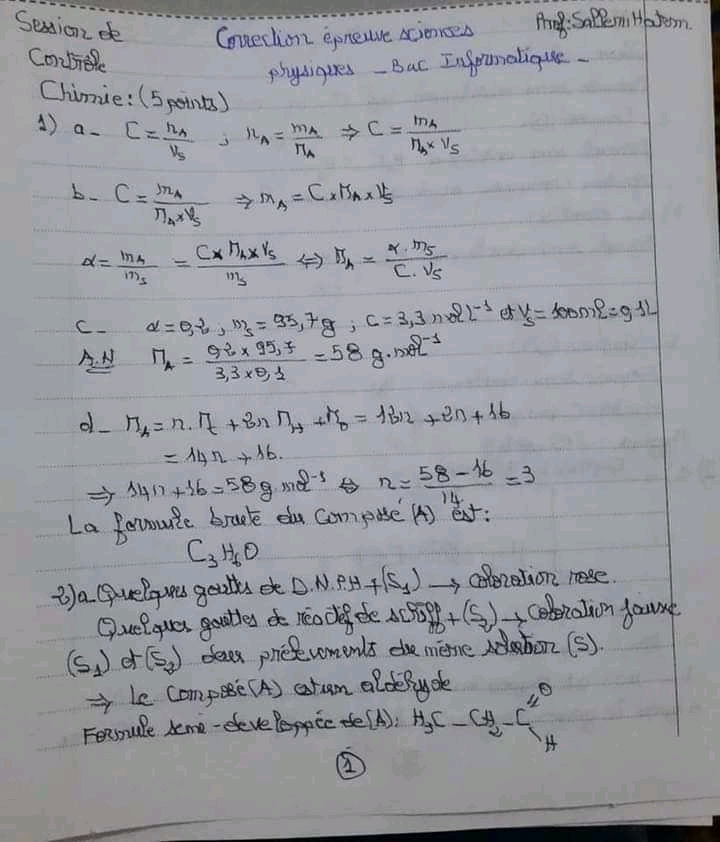 Session de Contrôle
Correction épreuve sciences physiques - Bac Informatique -
Prof: Sallemi Hatem
Chimie: (5 points)
1) a- C = n_A / V_S ; n_A = m_A / M_A ⇒ C = m_A / (M_A × V_S)
b- C = m_A / (M_A × V_S) ⇒ m_A = C × M_A × V_S
α = m_A / m_S = (C × M_A × V_S) / m_S ⇔ M_A = (α . m_S) / (C . V_S)
c- α = 0,2 ; m_S = 95,7 g ; C = 3,3 mol L⁻¹ et V_S = 100 mL = 0,1 L
A.N M_A = (0,2 × 95,7) / (3,3 × 0,1) = 58 g.mol⁻¹
d- M_A = n.M_C + 2n M_H + M_O = 12n + 2n + 16
= 14n + 16.
⇒ 14n + 16 = 58 g mol⁻¹ ⇔ n = (58 - 16) / 14 = 3
La formule brute du composé (A) est:
C₃H₆O
2) a Quelques gouttes de D.N.P.H + (S₁) → coloration rose.
Quelques gouttes de réactif de schiff + (S₂) → coloration jaune
(S₁) et (S₂) deux prélèvements du même solution (S).
⇒ Le composé (A) est un aldéhyde
Formule semi-developpée de (A): H₃C - CH₂ - C (= O) - H
1